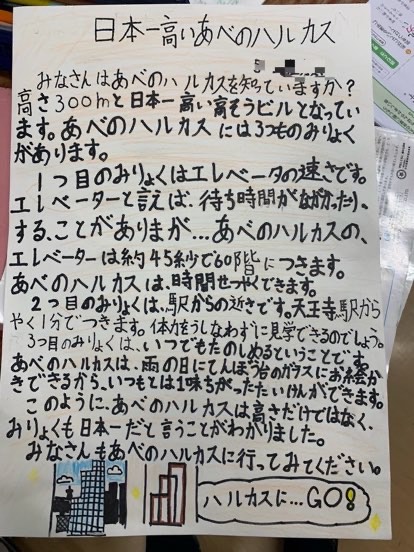 日本一高いあべのハルカス
みなさんはあべのハルカスを知っていますか？
高さ300mと日本一高い高そうビルとなってい
ます。あべのハルカスには3つものみりょく
があります。
1つ目のみりょくはエレベータの速さです。
エレベーターと言えば、待ち時間がながかったり、
する、ことがありまが…あべのハルカスの、
エレベーターは約45秒で60階につきます。
あべのハルカスは、時間せつやくできます。
2つ目のみりょくは、駅からの近さです。天王寺駅から
やく1分でつきます。体力をうしなわずに見学できるのでしょう。
3つ目のみりょくは、いつでもたのしめるということです。
あべのハルカスは、雨の日にてんぼう台のガラスにお絵か
きできるから、いつもとは1味ちがったたいけんができます。
このように、あべのハルカスは高さだけではなく、
みりょくも日本一だと言うことがわかりました。
みなさんもあべのハルカスに行ってみてください。
ハルカスに…GO!